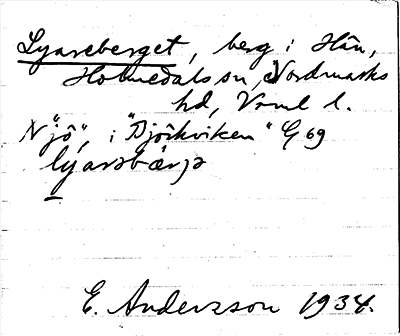 Lyareberget, berg i Hån,
Holmedals sn, Nordmarks
hd, Vrml l.
N "jö", i "Djökviken" G 69
lyarebærjə
E. Andersson 1934.